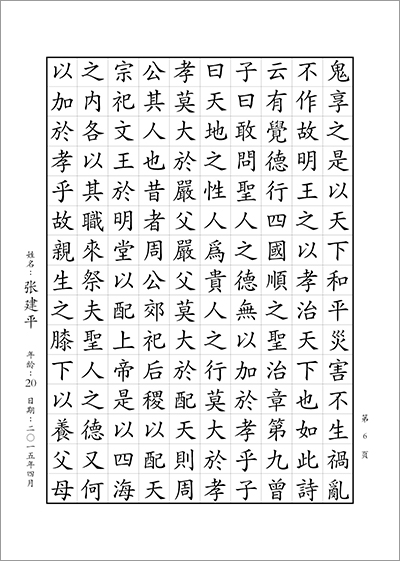 第 6 頁
鬼享之是以天下和平災害不生禍亂
不作故明王之以孝治天下也如此詩
云有覺德行四國順之聖治章第九曾
子曰敢問聖人之德無以加於孝乎子
曰天地之性人爲貴人之行莫大於孝
孝莫大於嚴父嚴父莫大於配天則周
公其人也昔者周公郊祀后稷以配天
宗祀文王於明堂以配上帝是以四海
之內各以其職來祭夫聖人之德又何
以加於孝乎故親生之膝下以養父母
姓名：张建平 年龄：20 日期：二〇一五年四月